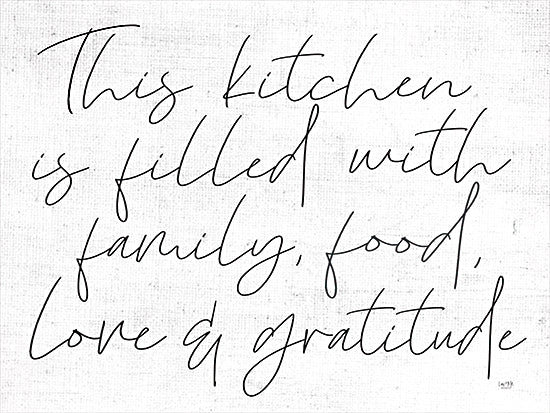 This kitchen
is filled with
family, food,
love & gratitude